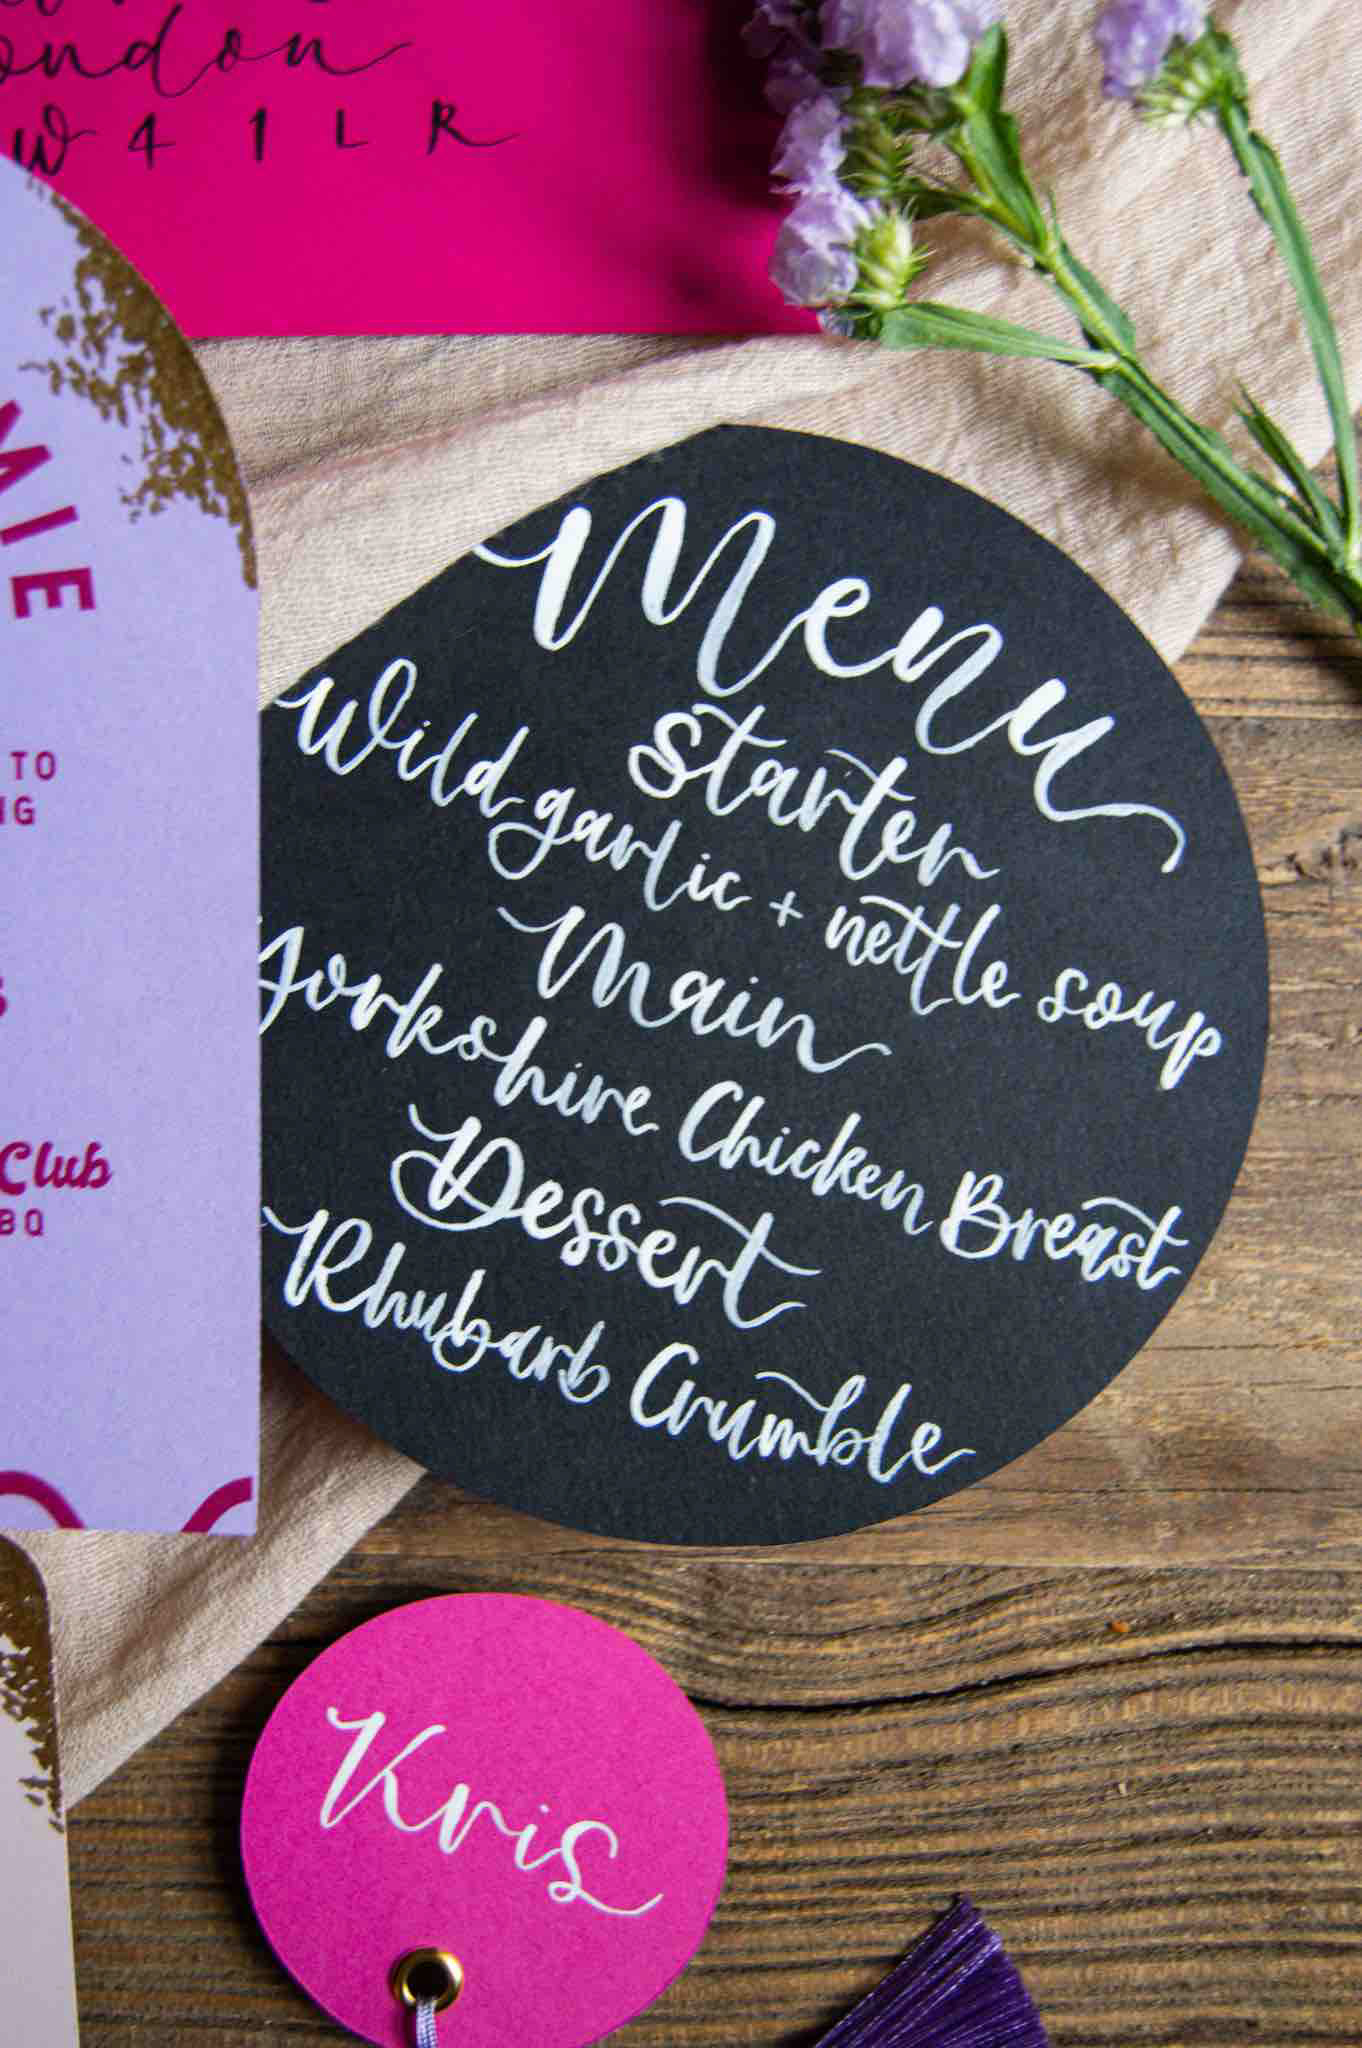 London
W4 1LR
MIE
TO
NG
Club
BBQ
Menu
Starter
Wild garlic + nettle soup
Main
Yorkshire Chicken Breast
Dessert
Rhubarb Crumble
Kris